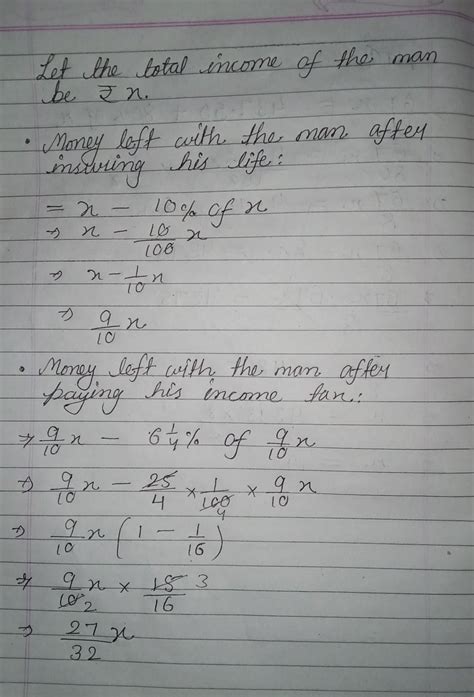 Let the total income of the man
be ₹ x.
• Money left with the man after
insuring his life:
= x - 10% of x
⇒ x - 10/100 x
⇒ x - 1/10 x
⇒ 9/10 x
• Money left with the man after
paying his income tax.:
⇒ 9/10 x - 6 1/4 % of 9/10 x
⇒ 9/10 x - 25/4 × 1/100 4 × 9/10 x
⇒ 9/10 x (1 - 1/16)
⇒ 9/10 2 x × 15/16 3
⇒ 27/32 x